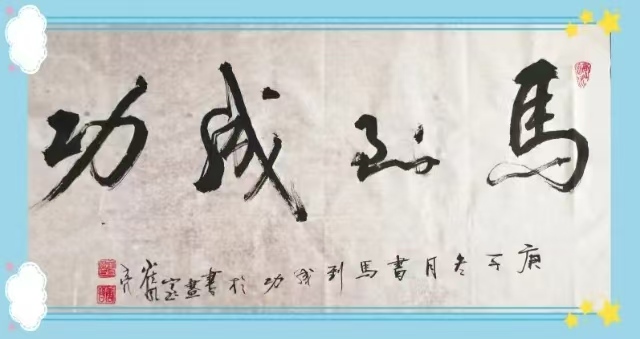 馬到成功
庚子冬月書馬到成功於書畫室